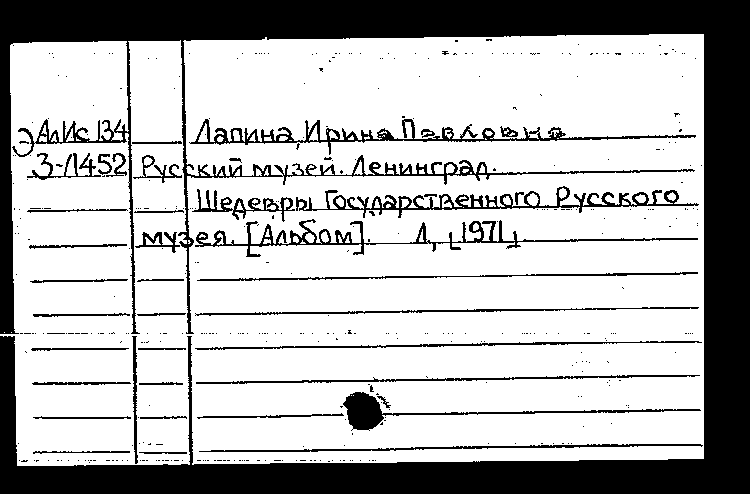 Э АлИс 134 Лапина, Ирина Павловна
З-Л452 Русский музей. Ленинград.
Шедевры Государственного Русского
музея. [Альбом]. Л, ⌊1971⌋